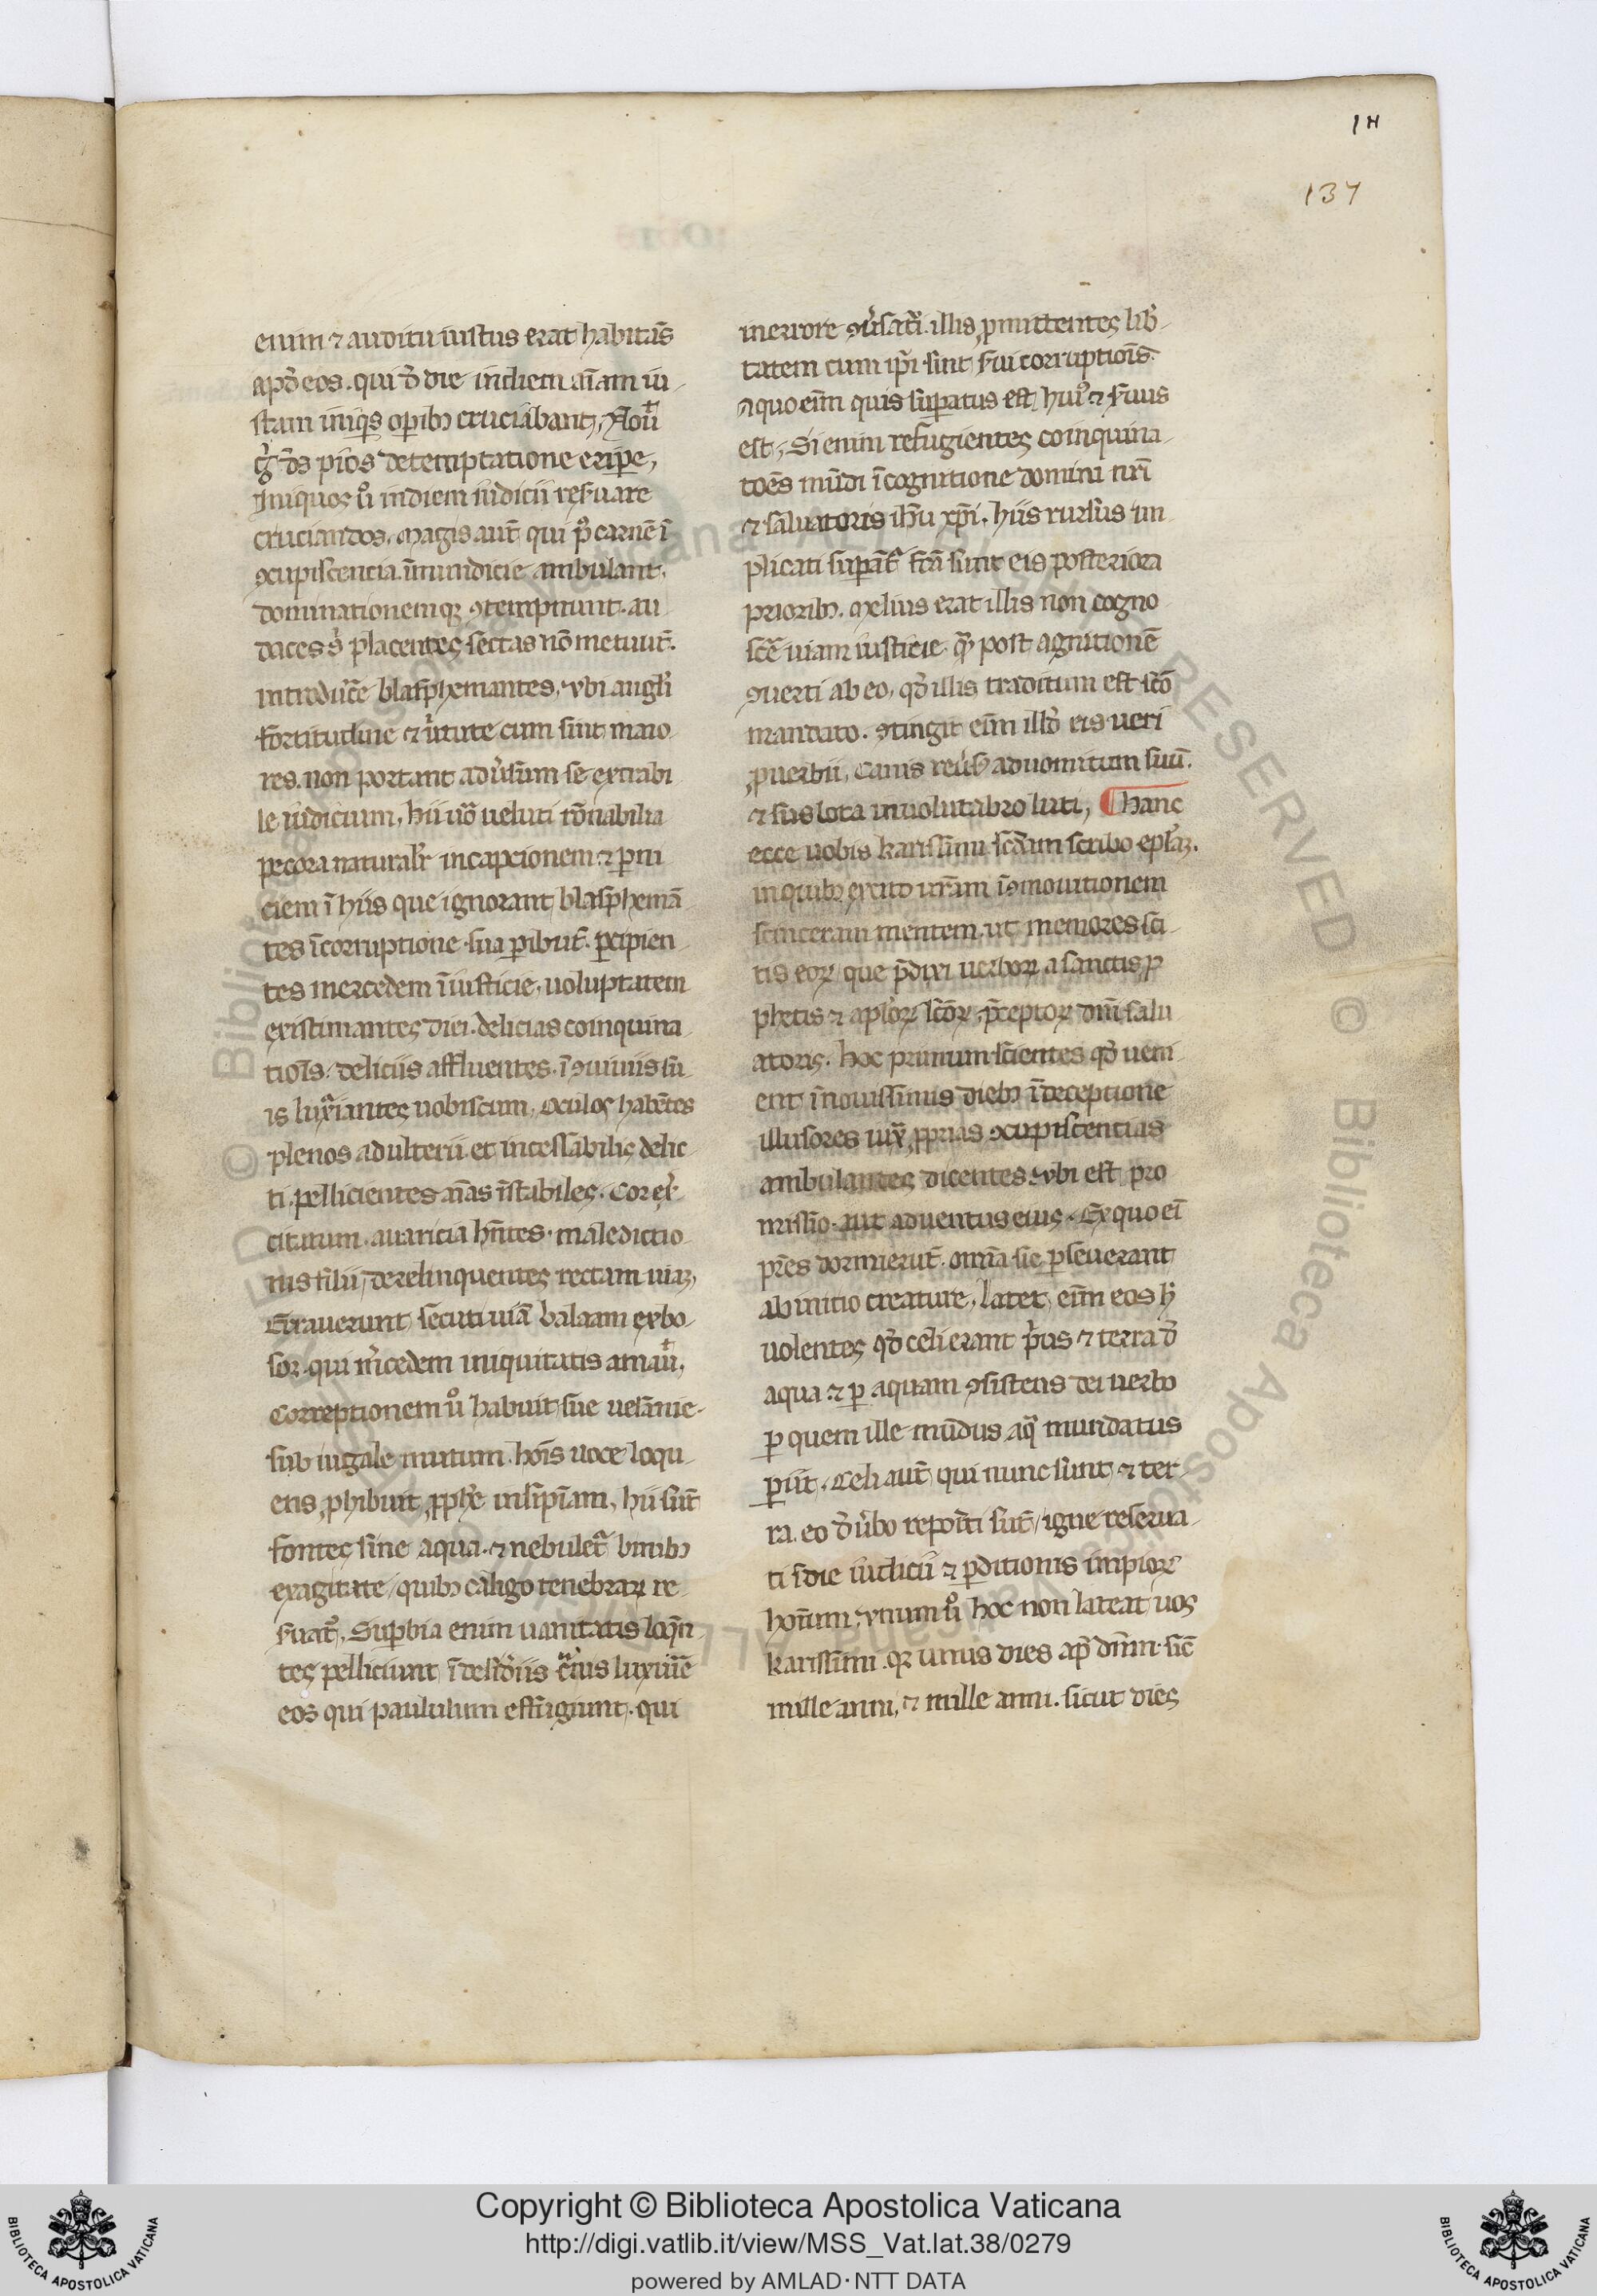 IH
137
enim ⁊ auditu iustus erat habitās
apd̄ eos. qui d̄ die in diem aīam iu-
stam iniq̄s opibꝫ cruciabant. Nouit
g̊ dn̄s pios de temptatione eripe,
Iniquos ů in diem iudicii reſuare
cruciandos. Magis aut̄ qui p̊ carnē ī
ꝯcupiscencia īmundicie ambulant.
dominationemqꝫ ꝯtempnunt. au-
daces s' placentes sectas nō metuūt.
introduce᷑ blasphemantes. vbi angli̅
fortitudine ⁊ u̇tute cum sint maio-
res. non portant adu̇sum se extabi
le iudicium. hii uō ueluti rōnabilia
pecora naturalr̄ in capcionem ⁊ p̱ni
ciem ī hiis que ignorant blasphemā
tes ī corruptione sua p̱ibūt. p̱cipien-
tes mercedem īiusticie. uoluptatem
existimantes diei delicias coinquina-
tiōis. delitiis affluentes. ī ꝯuiuiis su-
is luxiantes uobiscum. Oculos habētes
plenos adulterii et incessabilis delic-
ti. pellicientes aīas īstabiles. Cor ex̄-
citatum auaricia hn̄tes. maledictio-
nis filii, derelinquentes rectam uiaꝫ,
Errauerunt secuti uiā balaam ex bo-
sor. qui m̄cedem iniquitatis amauit,
Correptionem ů habuit sue uesanie-
sub iugale mutum. hoīs uoce loqu-
ens, ꝓhibuit ꝓph̄e insipiam, hii sūt
fontes sine aqua. ⁊ nebule t̄binibꝫ
exagitate, quibꝫ caligo tenebraꝝ re-
ſuat̃. Supbia enim uanitatis loqn̄-
tes pelliciunt ī desid̄iis c̄nis luxurie
eos qui paululum effugiunt. qui
in errore ꝯu̇sāt̃. illis ꝓmittentes lib̄-
tatem cum ip̄i sint ſui corruptiōis.
A quo eīm quis supatus est, hui̊ ⁊ ſuus
est. Si enim refugientes coinquina-
tōes mūdi ī cognitione domini nr̄i
⁊ saluatoris ihū xp̄i. hiis rursus im-
plicati supāt̃ fc̄a sunt eis posteriora
prioribꝫ. Melius erat illis non cogno-
sce᷑ uiam iusticie. q̄ post agnitionē
ꝯuerti ab eo, qd̄ illis traditum est sc̄o
mandato. ꝯtingit eīm illd̄ eis ueri
ꝓuerbii, Canis reu̇sus ad uomitum suū.
⁊ sus lota in uolutabro luti, Hanc
ecce uobis karissimi scd̄am scribo eplaꝫ.
in quibꝫ excito ur̄am ī ꝯmonitionem
sinceram mentem. ut memores si-
tis eoꝝ que p̄dixi uerboꝝ a sanctis ꝓ
phetis ⁊ aploꝝ sc̄oꝝ, p̄ceptoꝝ dn̄i salu-
atoris. hoc primum scientes qd̄ ueni-
ent ī nouissimis diebꝫ ī deceptione
illusores iux̄ ꝓprias ꝯcupiscentias
ambulantes dicentes. vbi est pro-
missio. aut aduentus eius. Ex quo eī
pr̄es dormierūt. omīa sic p̱seuerant
ab initio creature. Latet eīm eos h̄
uolentes qd̄ celi erant p̄us ⁊ terra d̄
aqua ⁊ p̱ aquam ꝯsistens dei uerbo
p̱ quem ille mūdus aq̄ mundatus
p̱iit. Celi aut̄ qui nunc sunt ⁊ ter-
ra. eod̄ u̇bo repoīti sūt, igne reserua-
ti ī die iudicii ⁊ p̱ditionis impioꝝ
hoīum. vnum ů hoc non lateat uos
karissimi. qꝫ unus dies ap̄ dm̄in. sic̄
mille anni, ⁊ mille anni. sicut dies
Copyright © Biblioteca Apostolica Vaticana
http://digi.vatlib.it/view/MSS_Vat.lat.38/0279
powered by AMLAD · NTT DATA
BIBLIOTECA APOSTOLICA VATICANA
BIBLIOTECA APOSTOLICA VATICANA